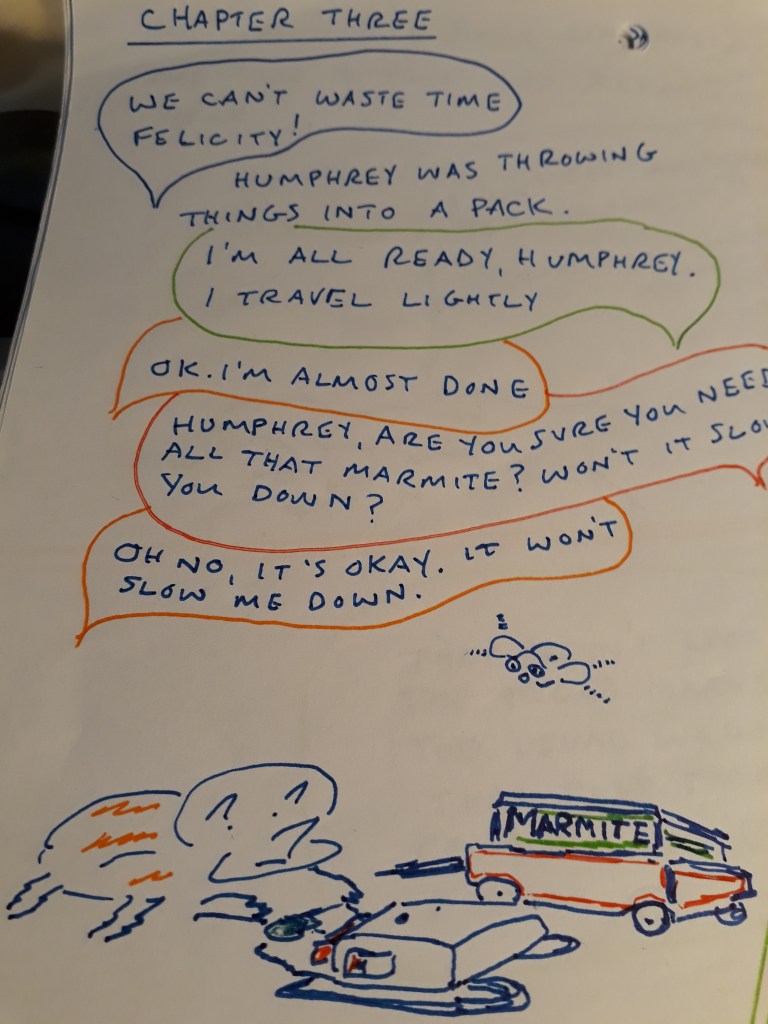 CHAPTER THREE
WE CAN'T WASTE TIME
FELICITY!
HUMPHREY WAS THROWING
THINGS INTO A PACK.
I'M ALL READY, HUMPHREY.
I TRAVEL LIGHTLY
OK. I'M ALMOST DONE
HUMPHREY, ARE YOU SURE YOU NEED
ALL THAT MARMITE? WON'T IT SLOW
YOU DOWN?
OH NO, IT'S OKAY. IT WON'T
SLOW ME DOWN.
MARMITE